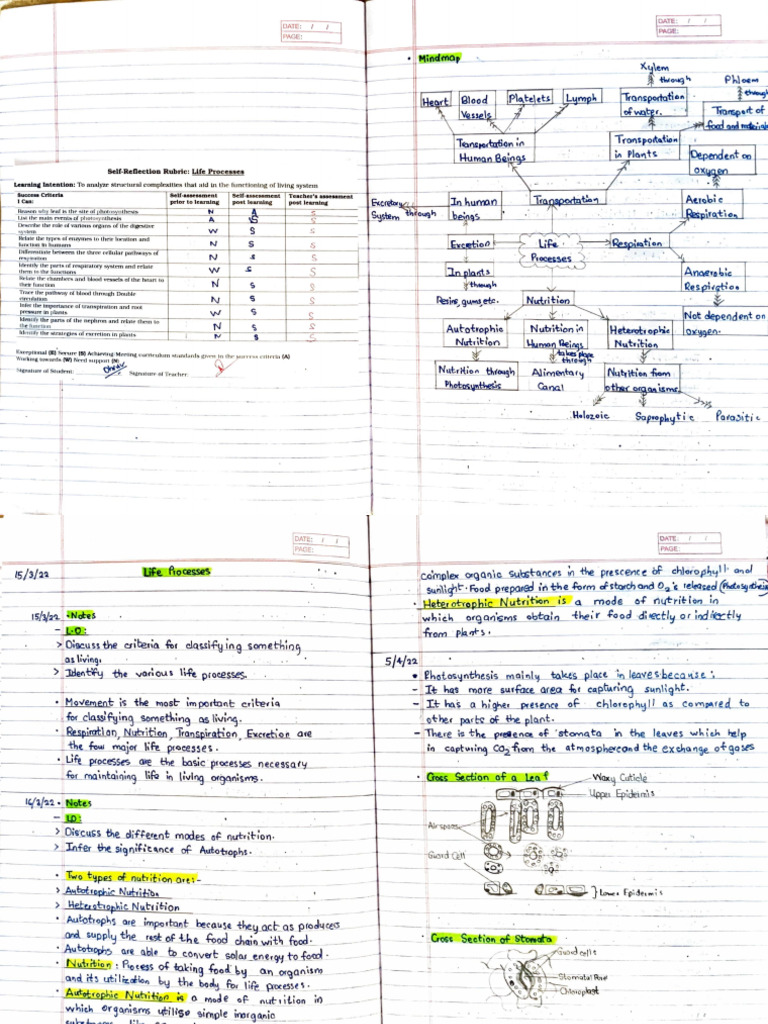 DATE: / /
PAGE:
Self-Reflection Rubric: Life Processes
Learning Intention: To analyze structural complexities that aid in the functioning of living system
Success Criteria
I Can:
Self-assessment prior to learning
Self-assessment post learning
Teacher's assessment post learning
Reason why leaf is the site of photosynthesis N A S
List the main events of photosynthesis A S S
Describe the role of various organs of the digestive system W S S
Relate the types of enzymes to their location and function in humans N S S
Differentiate between the three cellular pathways of respiration N S S
Identify the parts of respiratory system and relate them to the functions W S S
Relate the chambers and blood vessels of the heart to their function N S S
Trace the pathway of blood through Double circulation N S S
Infer the importance of transpiration and root pressure in plants W S S
Identify the parts of the nephron and relate them to the function N S S
Identify the strategies of excretion in plants N S S
Exceptional (E) Secure (S) Achieving-Meeting curriculum standards given in the success criteria (A)
Working towards (W) Need support (N)
Signature of Student: Signature of Teacher:
DATE: / /
PAGE:
• Mindmap
Xylem
through
Phloem
through
Heart
Blood Vessels
Platelets
Lymph
Transportation of water.
Transport of food and materials
Transportation in Human Beings
Transportation in Plants
Dependent on oxygen
Excretory System
through
In human beings
Transportation
Aerobic Respiration
Excretion
Life Processes
Respiration
In plants
through
Anaerobic Respiration
Resins, gums etc.
Nutrition
Not dependent on oxygen.
Autotrophic Nutrition
Nutrition in Human Beings
Heterotrophic Nutrition
takes place through
Nutrition through Photosynthesis
Alimentary Canal
Nutrition from other organisms.
Holozoic
Saprophytic
Parasitic
DATE: / /
PAGE:
15/3/22 Life Processes
15/3/22 • Notes
- L.O:
> Discuss the criteria for classifying something
as living.
> Identify the various life processes.
• Movement is the most important criteria
for classifying something as living.
• Respiration, Nutrition, Transpiration, Excretion are
the few major life processes.
• Life processes are the basic processes necessary
for maintaining life in living organisms.
16/3/22 • Notes
- LO:
> Discuss the different modes of nutrition.
> Infer the significance of Autotrophs.
• Two types of nutrition are:-
> Autotrophic Nutrition
> Heterotrophic Nutrition
• Autotrophs are important because they act as producers
and supply the rest of the food chain with food.
• Autotrophs are able to convert solar energy to food.
• Nutrition: Process of taking food by an organism
and its utilization by the body for life processes.
• Autotrophic Nutrition is a mode of nutrition in
which organisms utilise simple inorganic
DATE: / /
PAGE:
complex organic substances in the prescence of chlorophyll and
sunlight. Food prepared in the form of starch and O2 is released (Photosynthesis)
• Heterotrophic Nutrition is a mode of nutrition in
which organisms obtain their food directly or indirectly
from plants.
5/4/22
• Photosynthesis mainly takes place in leaves because:
- It has more surface area for capturing sunlight.
- It has a higher presence of chlorophyll as compared to
other parts of the plant.
- There is the presence of stomata in the leaves which help
in capturing CO2 from the atmosphere and the exchange of gases
• Cross Section of a Leaf
Waxy Cuticle
Upper Epidermis
Air spaces
Guard Cell
Lower Epidermis
• Cross Section of Stomata
Guard cells
Stomatal Pore
Chloroplast